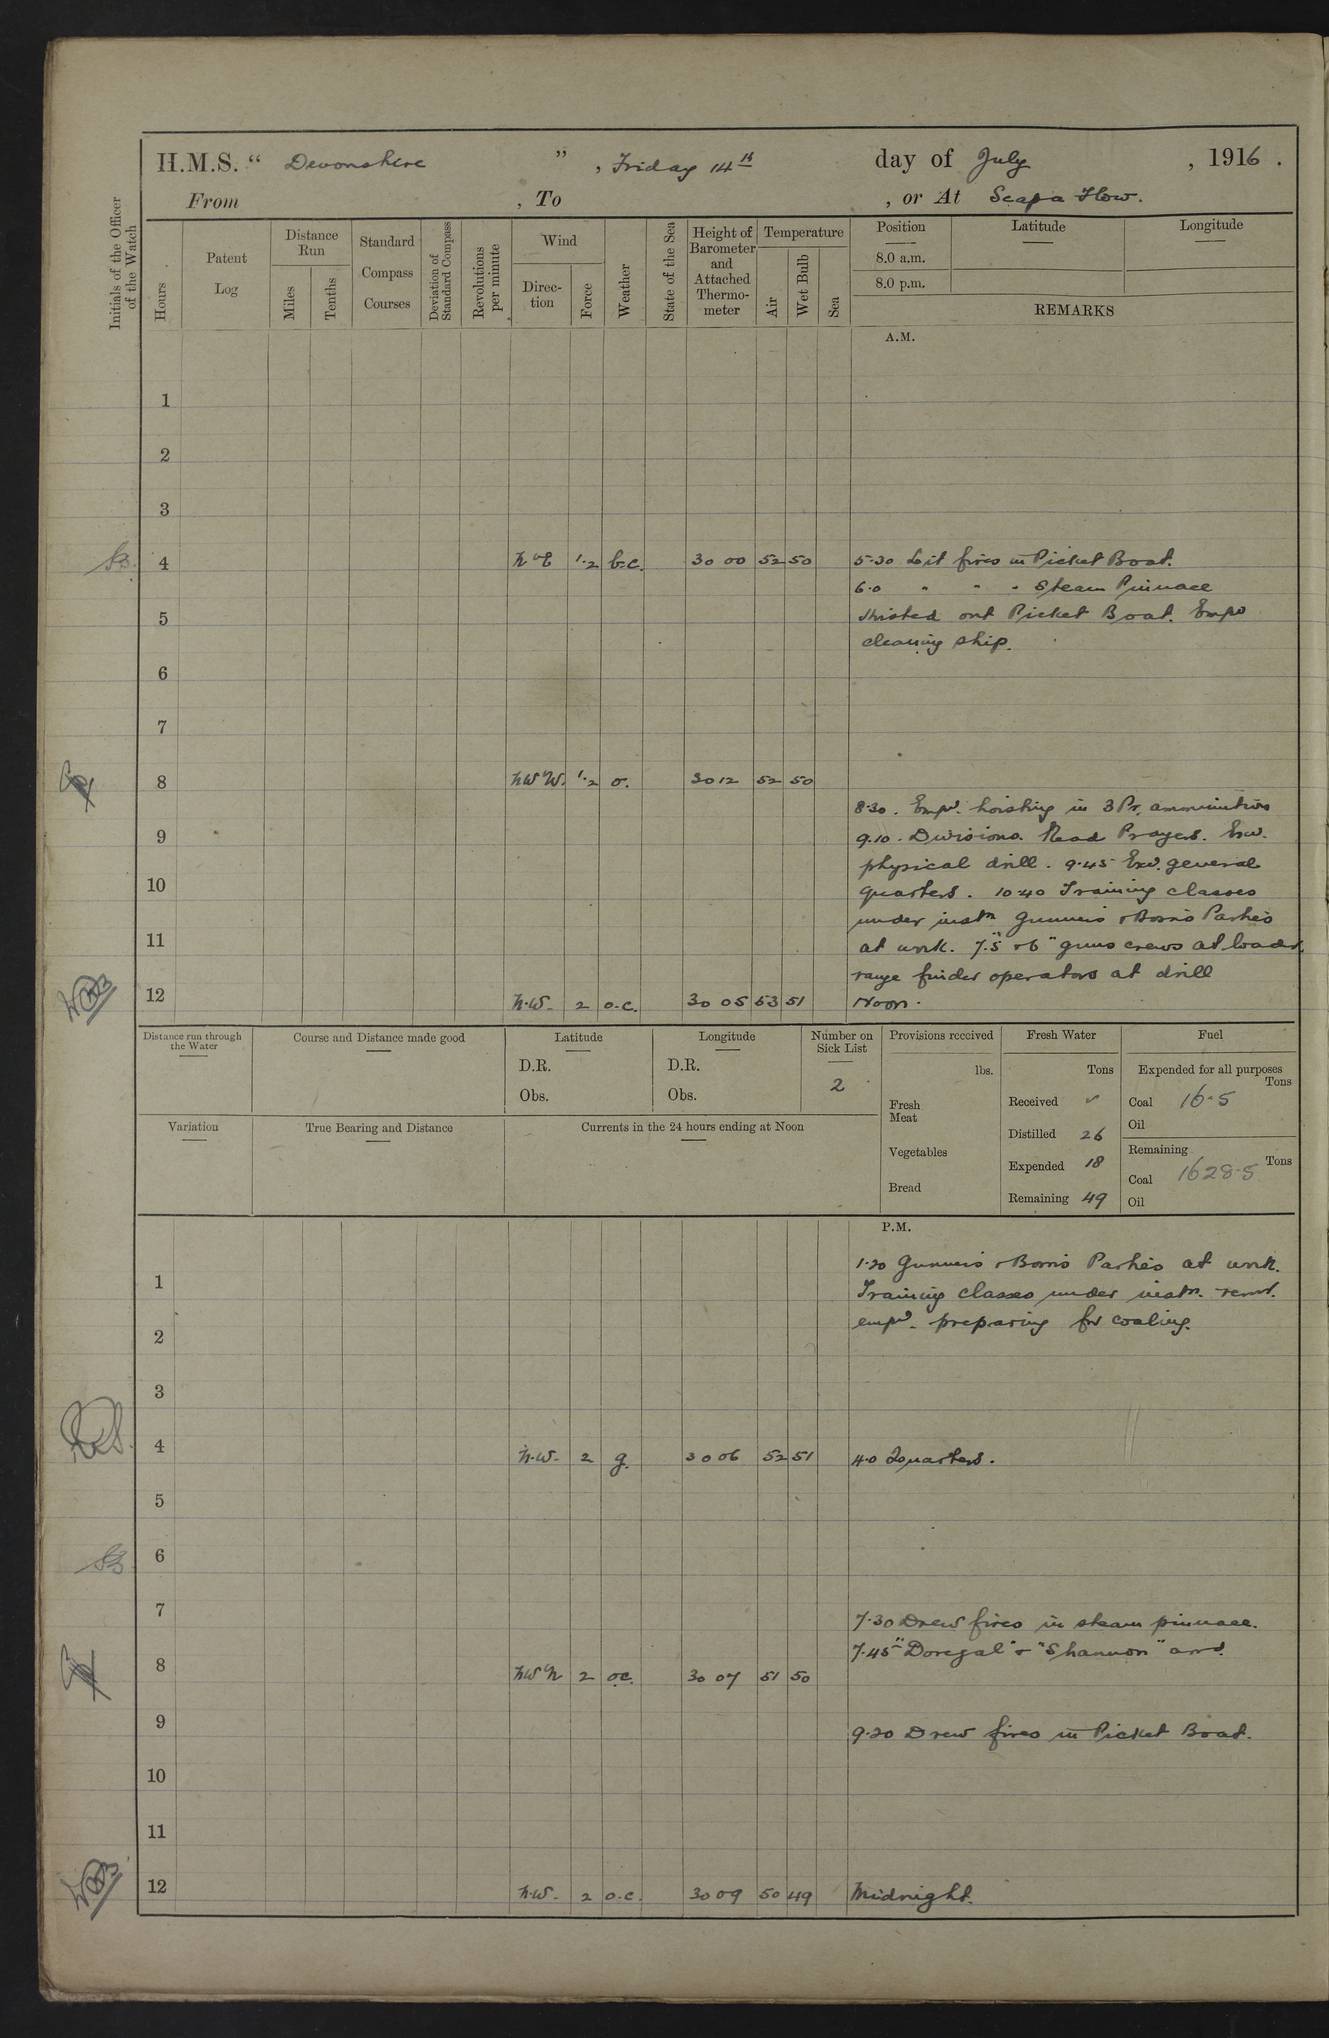 H.M.S. “ Devonshire ” , Friday 14th day of July , 1916 .
From , To , or At Scapa Flow.
Initials of the Officer of the Watch
Hours
Patent Log
Distance Run
Miles
Tenths
Standard Compass Courses
Deviation of Standard Compass
Revolutions per minute
Wind
Direc-tion
Force
Weather
State of the Sea
Height of Barometer and Attached Thermo-meter
Temperature
Air
Wet Bulb
Sea
Position
8.0 a.m.
8.0 p.m.
Latitude
Longitude
REMARKS
A.M.
1
2
3
4 1.2 b.c. 30 00 52 50 5.30 Lit fires in Picket Boat.
6.0 " " " Steam Pinnace
5 Hoisted out Picket Boat. Empd
cleaning ship.
6
7
8 1.2 o. 30 12 52 50
8.30. Empd. hoisting in 3 Pr. ammunition
9 9.10. Divisions. Read Prayers. Exd.
physical drill. 9.45 Exd. general
10 quarters. 10.40 Training classes
under instn Gunners & Bosns Parties
11 at work. 7.5" & 6" guns crews at loader,
range finder operators at drill
12 N.W. 2 o.c. 30 05 53 51 Noon.
Distance run through the Water
Course and Distance made good
Latitude
D.R.
Obs.
Longitude
D.R.
Obs.
Number on Sick List
2
Provisions received
lbs.
Fresh Meat
Vegetables
Bread
Fresh Water
Tons
Received ✓
Distilled 26
Expended 18
Remaining 49
Fuel
Expended for all purposes
Tons
Coal 16.5
Oil
Remaining
Tons
Coal 1628.5
Oil
Variation
True Bearing and Distance
Currents in the 24 hours ending at Noon
P.M.
1.20 Gunners & Bosns Parties at work.
1 Training classes under instn. remr.
2 empd. preparing for coaling.
3
4 N.W. 2 g. 30 06 52 51 4.0 Quarters.
5
6
7 7.30 Drew fires in steam pinnace.
7.45 "Donegal" & "Shannon" arrd.
8 NW'N 2 oc. 30 07 51 50
9 9.20 Drew fires in Picket Boat.
10
11
12 N.W. 2 o.c. 30 09 50 49 Midnight.